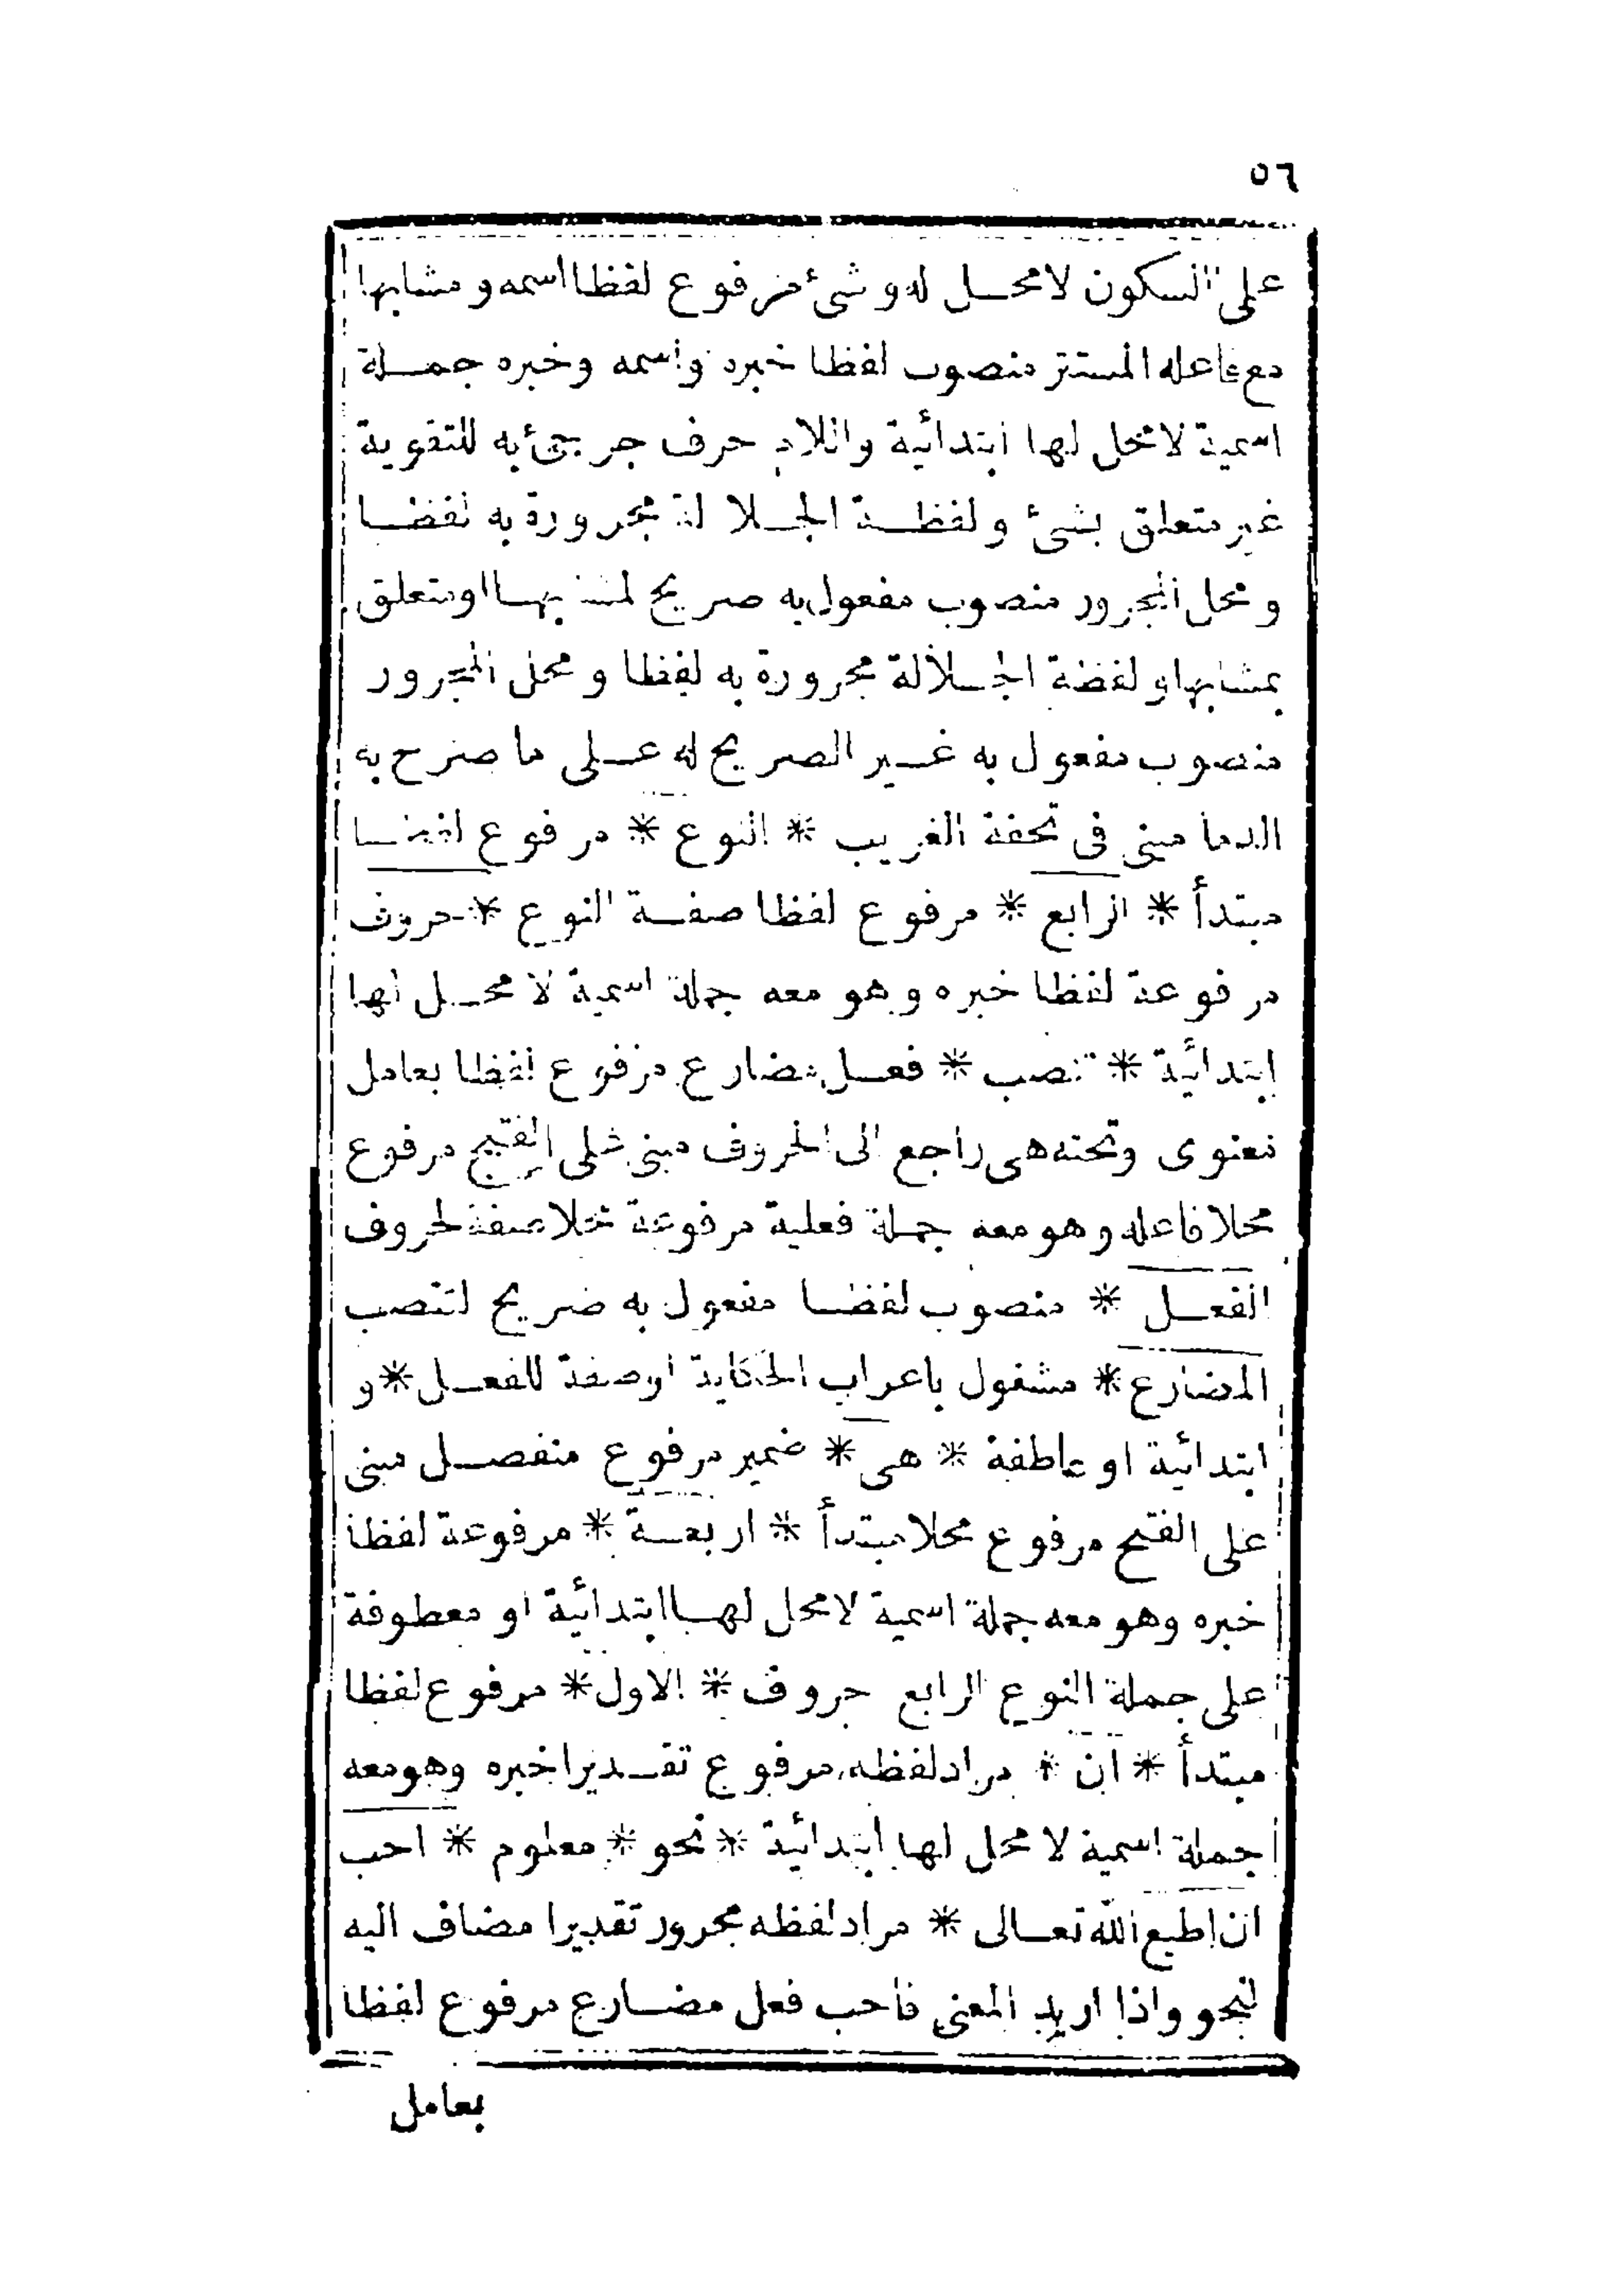 ٥٦
على السكون لا محل له وشئ مرفوع لفظا اسمه ومشابها
مع فاعله المستتر منصوب لفظا خبره واسمه وخبره جملة
اسمية لا محل لها ابتدائية واللام حرف جر جئ به للتقوية
غير متعلق بشئ ولفظة الجلالة مجرورة به لفظا
ومحل المجرور منصوب مفعول به صريح لمشابها او متعلق
بمشابها ولفظة الجلالة مجرورة به لفظا ومحل المجرور
منصوب مفعول به غير الصريح له على ما صرح به
الدمامينى فى تحفة الغريب * النوع * مرفوع لفظا
مبتدأ * الرابع * مرفوع لفظا صفة النوع * حروف
مرفوعة لفظا خبره وهو معه جملة اسمية لا محل لها
ابتدائية * تنصب * فعل مضارع مرفوع لفظا بعامل
معنوى وتحته هى راجع الى الحروف مبنى على الفتح مرفوع
محلا فاعله وهو معه جملة فعلية مرفوعة محلا صفة لحروف
الفعل * منصوب لفظا مفعول به صريح لتنصب
المضارع * مشغول باعراب الحكاية او صفة للفعل * و
ابتدائية او عاطفة * هى * ضمير مرفوع منفصل مبنى
على الفتح مرفوع محلا مبتدأ * اربعة * مرفوعة لفظا
خبره وهو معه جملة اسمية لا محل لها ابتدائية او معطوفة
على جملة النوع الرابع حروف * الاول * مرفوع لفظا
مبتدأ * ان * مراد لفظه مرفوع تقديرا خبره وهو معه
جملة اسمية لا محل لها ابتدائية * نحو * معلوم * احب
ان اطيع الله تعالى * مراد لفظه مجرور تقديرا مضاف اليه
لنحو واذا اريد المعنى فاحب فعل مضارع مرفوع لفظا
بعامل